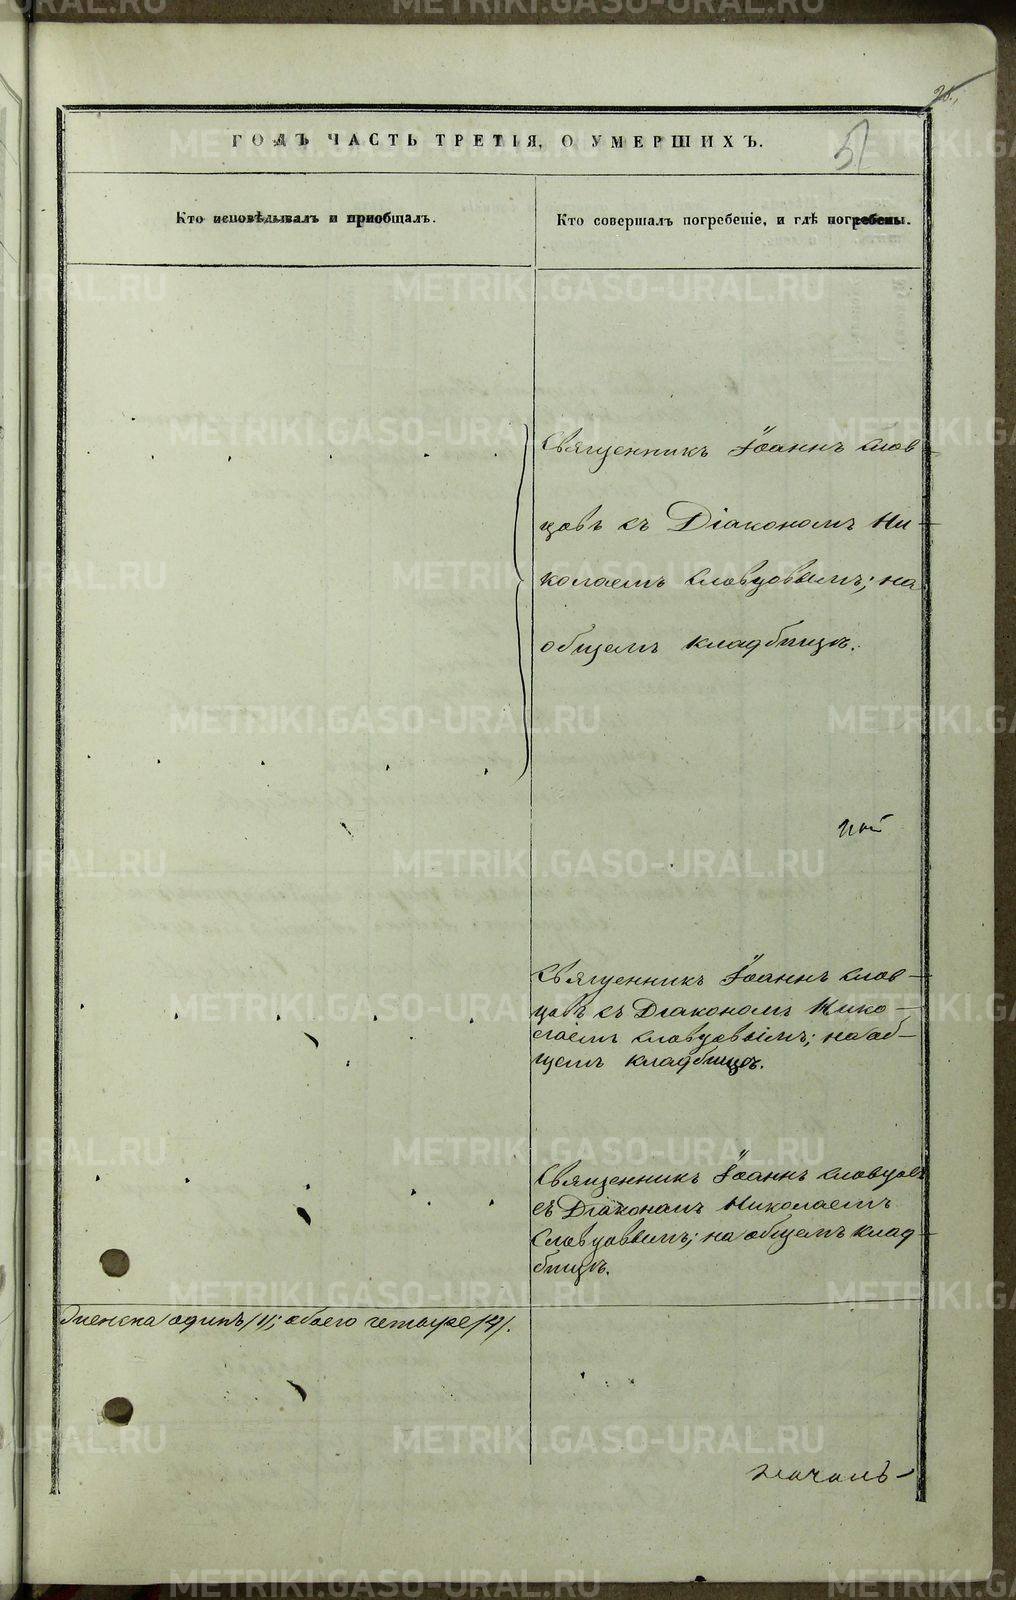 26.
ГОДЪ ЧАСТЬ ТРЕТІЯ, О УМЕРШИХЪ.
51
Кто исповѣдывалъ и пріобщалъ.
Кто совершалъ погребеніе, и гдѣ погребены.
Священникъ Іоаннъ Слов
цовъ съ Діакономъ Ни-
колаемъ Словцовымъ; на
общемъ кладбищѣ.
Священникъ Іоаннъ Слов-
цовъ съ Діакономъ Нико-
лаемъ Словцовымъ; на об-
щемъ кладбищѣ.
Священникъ Іоаннъ Словцовъ
съ Діакономъ Николаемъ
Словцовымъ; на общемъ клад-
бищѣ.
женска одинъ /1/; обоего четыре /4/.
METRIKI.GASO-URAL.RU